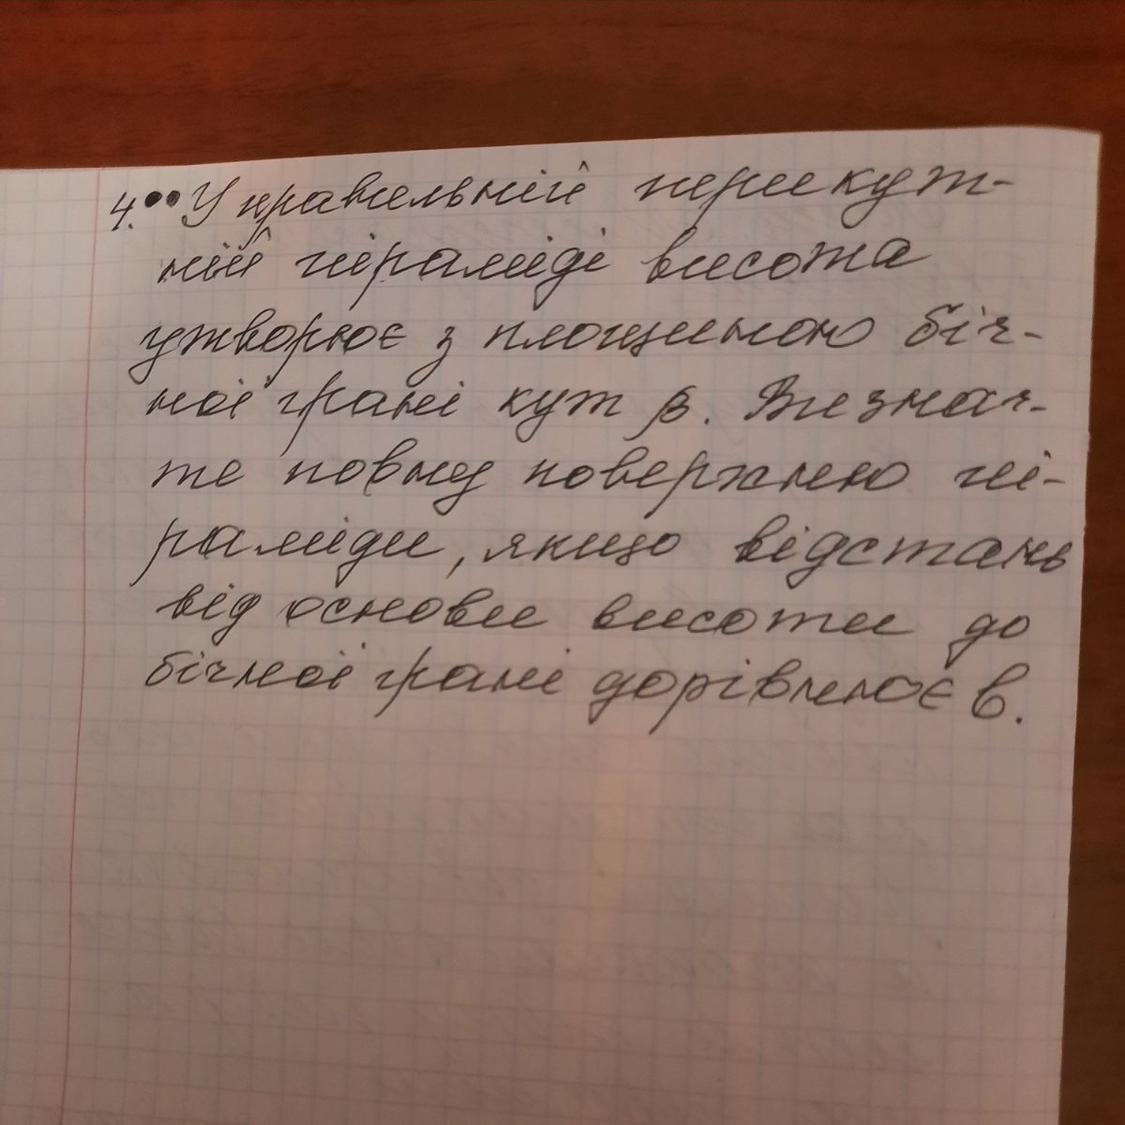 4.•• У правильній трикут-
ній піраміді висота
утворює з площиною біч-
ної грані кут β. Визнач-
те повну поверхню пі-
раміди, якщо відстань
від основи висоти до
бічної грані дорівнює в.